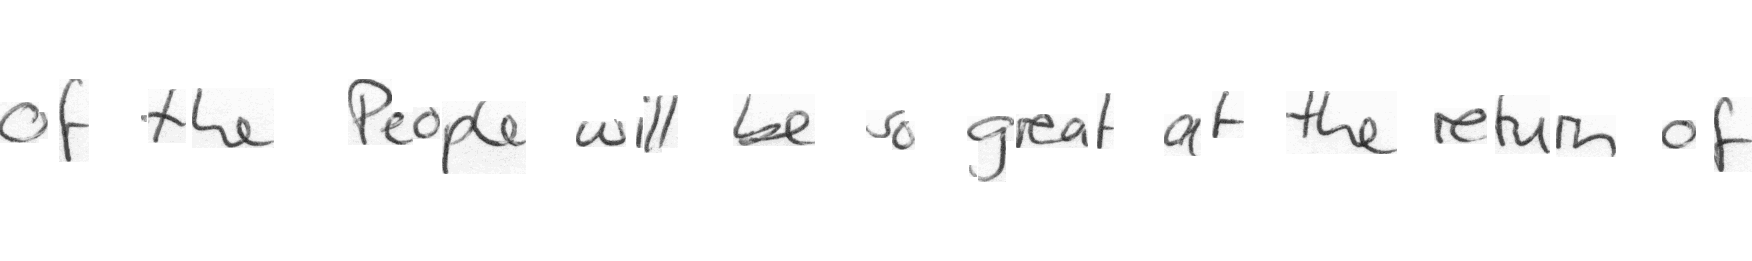 of the People will be so great at the return of